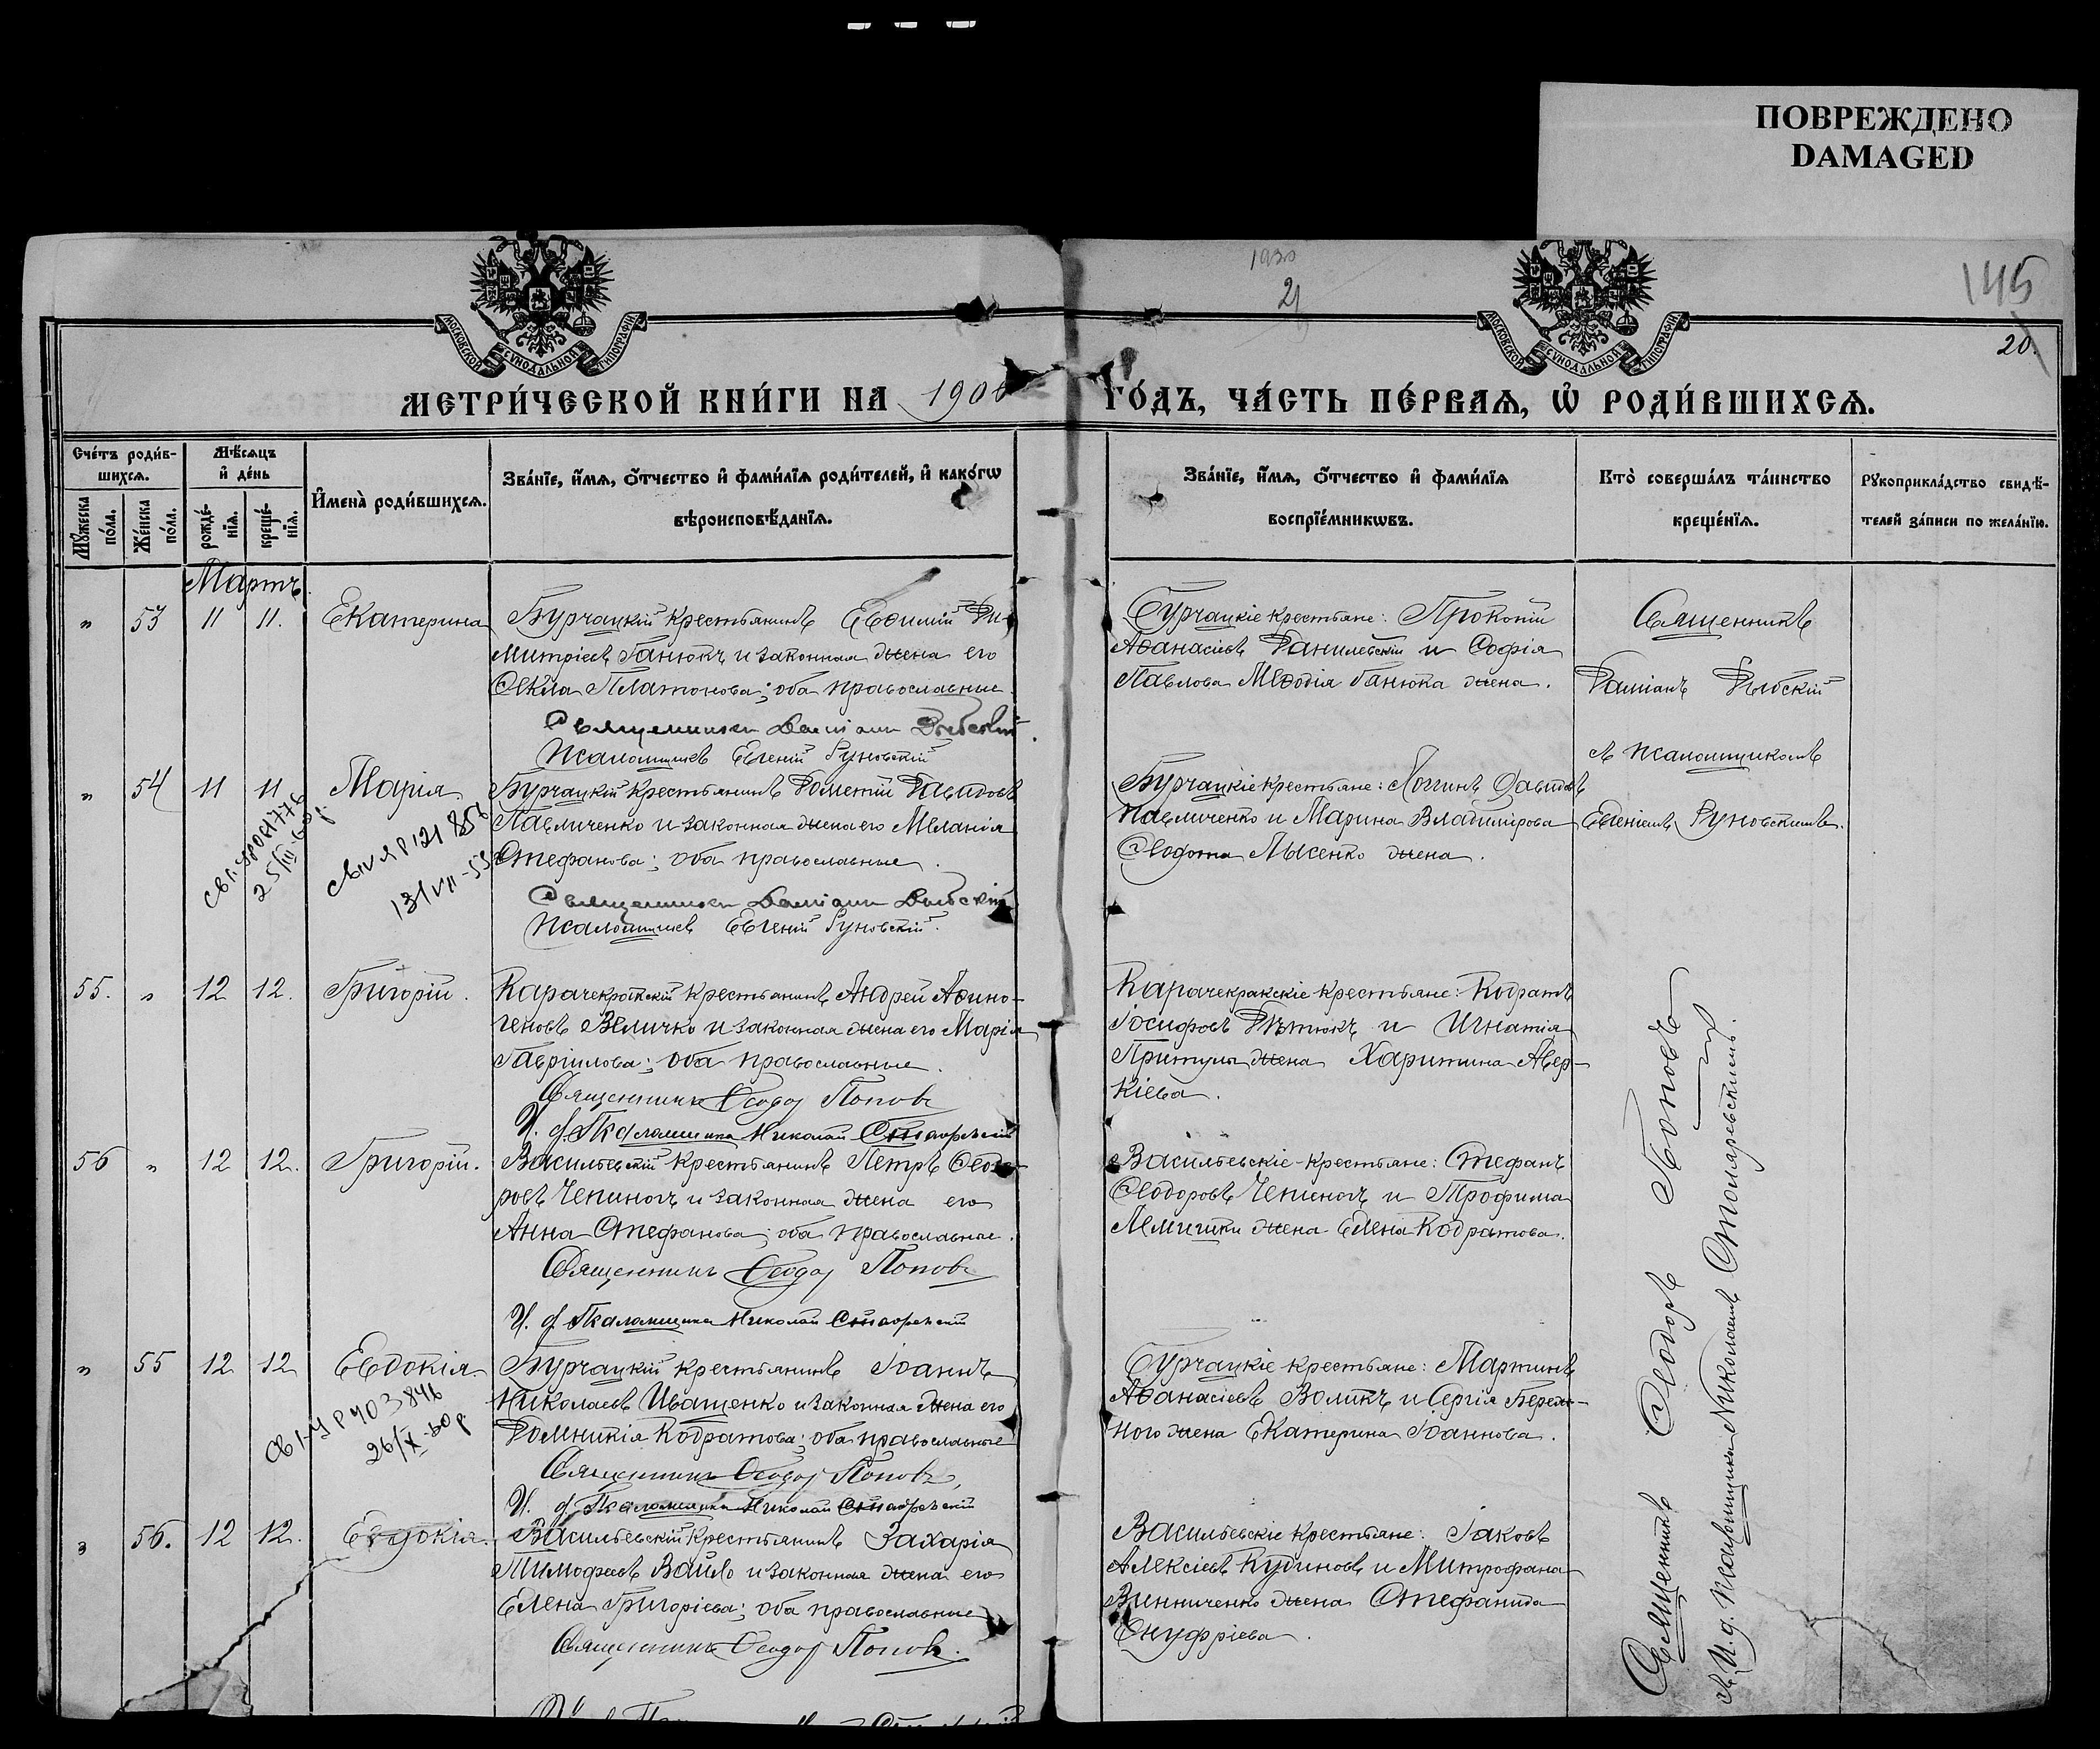 ПОВРЕЖДЕНО
DAMAGED
1930
21
145
20.
МОСКОВСКОЙ СѴНОДАЛЬНОЙ ТИПОГРАФІИ
МОСКОВСКОЙ СѴНОДАЛЬНОЙ ТИПОГРАФІИ
МЕТРИ́ЧЕСКОЙ КНИ́ГИ НА 1900 ГО́ДЪ, ЧА́СТЬ ПЕ́РВАЯ, Ѡ҆ РОДИ́ВШИХСЯ.
Сче́тъ роди́в-
шихся.
Мѣ́сяцъ
и҆ де́нь
Мꙋ́жеска по́ла.
Же́нска по́ла.
рожде́-
нїя.
креще́-
нїя.
И҆мена̀ роди́вшихся.
Зва́нїе, и҆́мя, ѻ҆́тчество и҆ фами́лїя роди́телей, и҆ како́гѡ
вѣроисповѣ́данїя.
Зва́нїе, и҆́мя, ѻ҆́тчество и҆ фами́лїя
воспрїе́мникѡвъ.
Кто̀ соверша́лъ та́инство
креще́нїя.
Рꙋкоприкла́дство свидѣ́-
телей за́писи по жела́нїю.
Мартъ.
" 53 11 11. Екатерина
Бурчацкій крестьянинъ Евѳимій Ди-
митріевъ Ганюкъ и законная жена его
Ѳекла Платонова; оба православные.
Священникъ Даміанъ Дыбскій.
Псаломщикъ Евгеній Руновскій
Бурчацкіе крестьяне: Прокопій
Аѳанасіевъ Данилевскій и Софія
Павлова Меѳодія Ганюка жена.
Священникъ
Даміанъ Дыбскій
съ псаломщикомъ
Евгеніемъ Руновскимъ.
" 54 11 11 Марія.
Бурчацкій крестьянинъ Дометій Давидовъ
Павличенко и законная жена его Меланія
Стефанова; оба православные.
Священникъ Даміанъ Дыбскій
Псаломщикъ Евгеній Руновскій.
Бурчацкіе крестьяне: Логинъ Давидовъ
Павличенко и Марина Владимірова
Ѳеодота Лысенко жена.
25/III-60 р.
13/VII-55
55. " 12 12. Григорій.
Карачекракскій крестьянинъ Андрей Аѳино-
геновъ Величко и законная жена его Марія
Гавріилова; оба православные.
Священникъ Ѳеодоръ Поповъ
И. д. Псаломщика Николай
Карачекракскіе крестьяне: Кодратъ
Іосифовъ Дѣтюкъ и Игнатія
Притулы жена Харитина Авер-
кіева.
56 " 12 12. Григорій.
Васильевскій крестьянинъ Петръ Ѳеодо-
ровъ Чепиногъ и законная жена его
Анна Стефанова; оба православные.
Священникъ Ѳеодоръ Поповъ
И. д. Псаломщика Николай
Васильевскіе крестьяне: Стефанъ
Ѳеодоровъ Чепиногъ и Трофима
Лемишки жена Елена Кодратова.
" 55 12 12 Евдокія.
Бурчацкій крестьянинъ Іоаннъ
Николаевъ Иващенко и законная жена его
Домникія Кодратова; оба православные
Священникъ Ѳеодоръ Поповъ,
И. д. Псаломщика Николай
Бурчацкіе крестьяне: Мартинъ
Аѳанасіевъ Воликъ и Сергія Береж-
ного жена Екатерина Іоаннова.
403846
26/X-60 р
" 56. 12 12. Евдокія.
Васильевскій крестьянинъ Захарія
Тимоѳеевъ Вайло и законная жена его
Елена Григоріева; оба православные
Священникъ Ѳеодоръ Поповъ.
Васильевскіе крестьяне: Іаковъ
Алексіевъ Кудиновъ и Митрофана
Винниченко жена Стефанида
Онуфріева.
Священникъ Ѳеодоръ Поповъ
съ И. д. псаломщика Николаемъ Столяревскимъ.